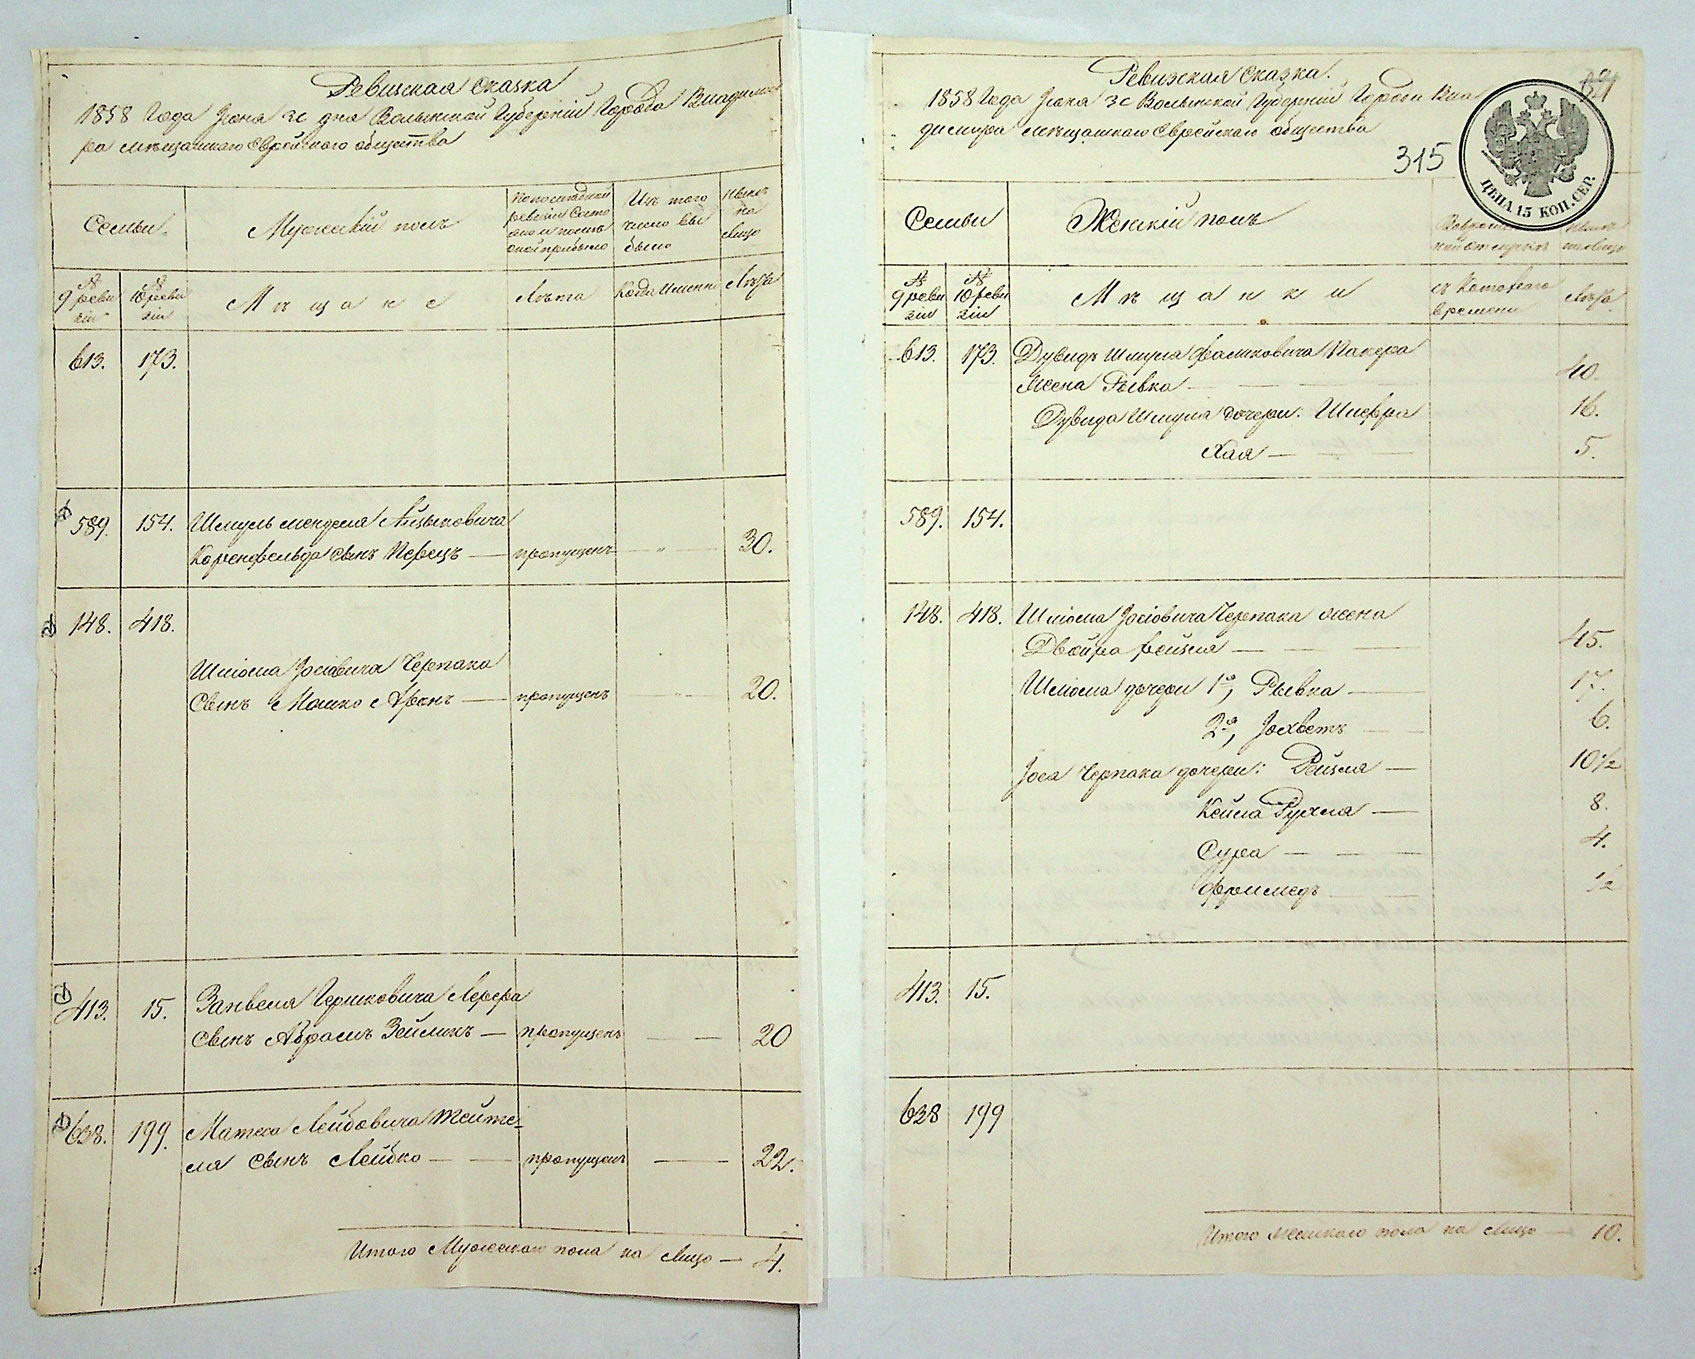 Ревизская сказка
1858 Года Іюня 30 дня Волынской Губерніи Города Владими
ра мѣщанскаго Еврейского общества
Семьи
Мужескій полъ
По последней
ревизіи состо
яло и послѣ
оной прибыло
Изъ того
число вы
было
Нынѣ
на
лицо
№
9 реви
зіи
№
10 реви
зіи
Мѣщане
Лѣта
Когда именно
Лѣта
613. 173.
589. 154. Шмуль Менделя Айзыковича
Коренфельда сынъ Перецъ — пропущенъ — " — 30.
148. 418.
Шліома Іосіовича Черпака
Сынъ Мошко Аронъ — пропущенъ — " — 20.
413. 15. Занвеля Гершковича Лерера
сынъ Абрамъ Зейликъ — пропущенъ — — 20
638. 199. Матеса Лейбовича Тейте-
ля сынъ Лейбко — — пропущенъ — — 22.
Итого Мужескаго пола на лицо — 4.
Ревизская сказка.
1858 Года Іюня 30 Волынской Губерніи Города Вла
димира мѣщанскаго Еврейскаго общества
315
ЦЕНА 15 КОП. СЕР.
Семьи
Женскій полъ
№
9 реви
зіи
№
10 реви
зіи
Мѣщанки
съ котораго
времени
Лѣта
613. 173. Дувидъ Шмуля Фальковича Пакера
жена Рывка — — — 40.
Дувида Шмуля дочери: Шифра 16.
Хая — — — 5.
589. 154.
148. 418. Шліома Іосіовича Черпака жена
Двойра Фейга — — — 45.
Шліома дочери 1я, Рывка — 17.
2я, Іохветъ — — 6.
Іоса Черпака дочери: Рейзля — 10½
Кейла Рухля — 8.
Сура — — 4.
Фримедъ — ½
413. 15.
638 199
Итого женскаго пола на лицо — 10.